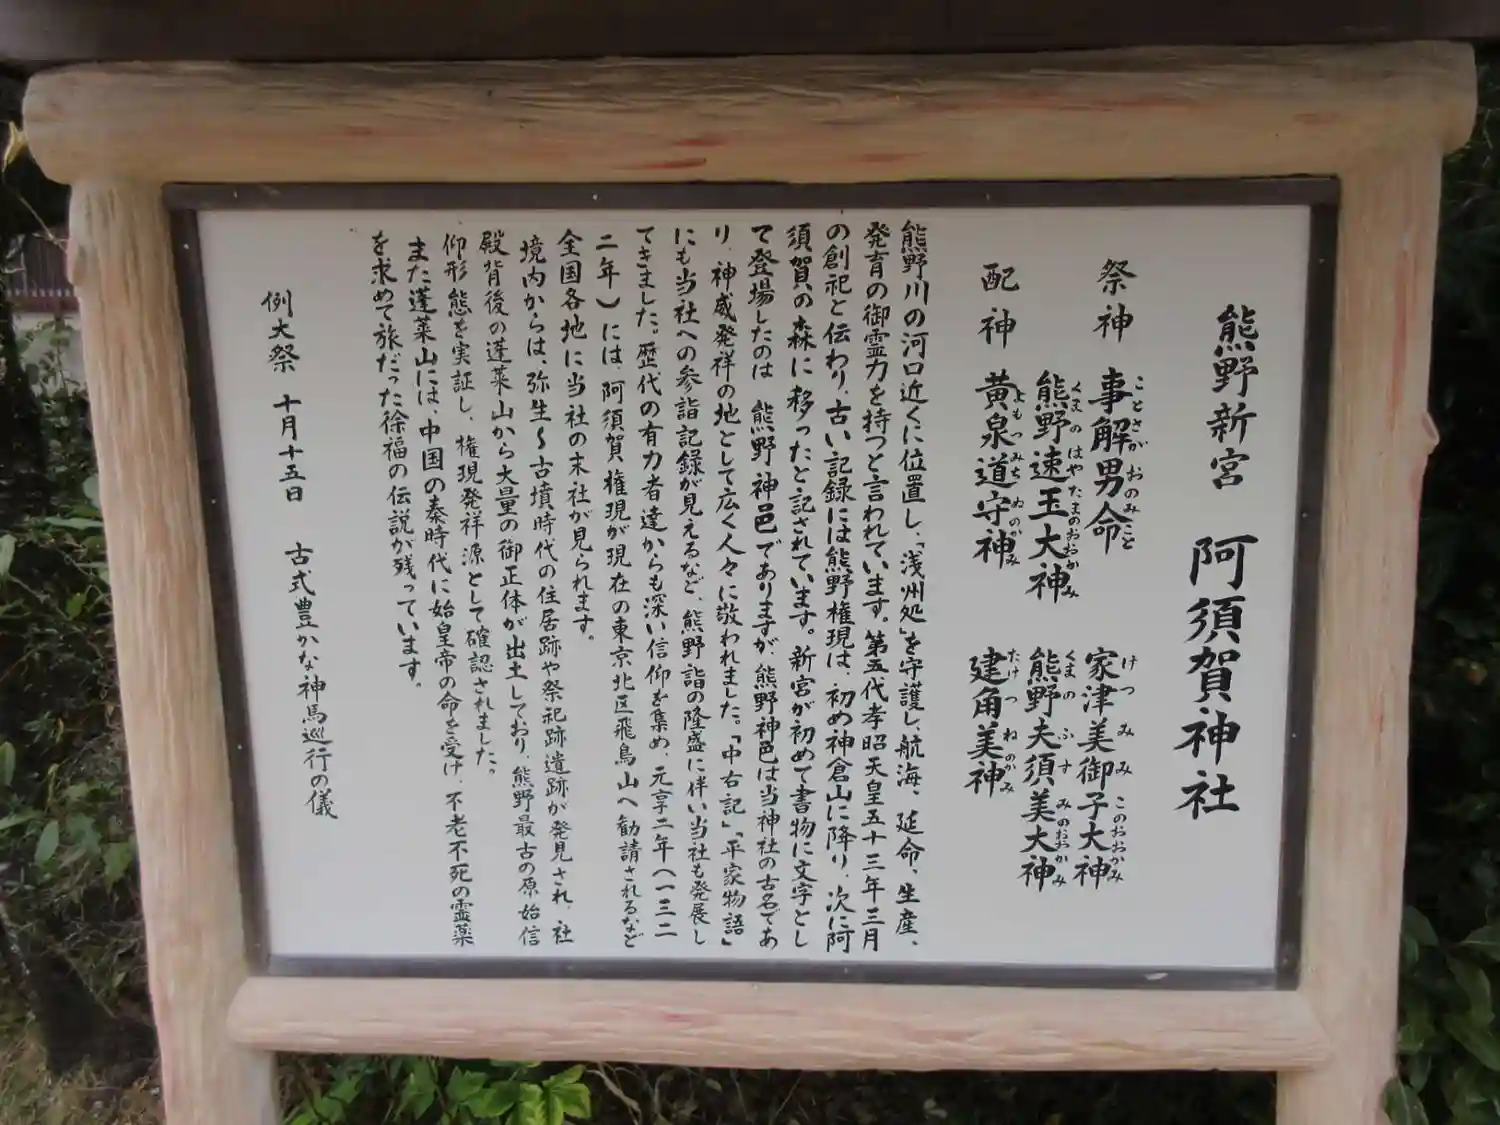 熊野新宮 阿須賀神社
祭神 事解男命 家津美御子大神
ことさかおのみこと けつみみこのおおかみ
熊野速玉大神 熊野夫須美大神
くまのはやたまのおおかみ くまのふすみのおおかみ
配神 黄泉道守神 建角美神
よもつみちもりのかみ たけつねのかみ
熊野川の河口近くに位置し、「浅州処」を守護し、航海、延命、生産、
発育の御霊力を持つと言われています。第五代孝昭天皇五十三年三月
の創祀と伝わり、古い記録には熊野権現は、初め神倉山に降り、次に阿
須賀の森に移ったと記されています。新宮が初めて書物に文字とし
て登場したのは 熊野神邑でありますが、熊野神邑は当神社の古名であ
り、神威発祥の地として広く人々に敬われました。「中右記」「平家物語」
にも当社への参詣記録が見えるなど、熊野詣の隆盛に伴い当社も発展し
てきました。歴代の有力者達からも深い信仰を集め、元亨二年(一三二
二年)には、阿須賀権現が現在の東京北区飛鳥山へ勧請されるなど
全国各地に当社の末社が見られます。
境内からは、弥生〜古墳時代の住居跡や祭祀跡遺跡が発見され、社
殿背後の蓬莱山から大量の御正体が出土しており、熊野最古の原始信
仰形態を実証し、権現発祥源として確認されました。
また蓬莱山には、中国の秦時代に始皇帝の命を受け、不老不死の霊薬
を求めて旅だった徐福の伝説が残っています。
例大祭 十月十五日 古式豊かな神馬巡行の儀